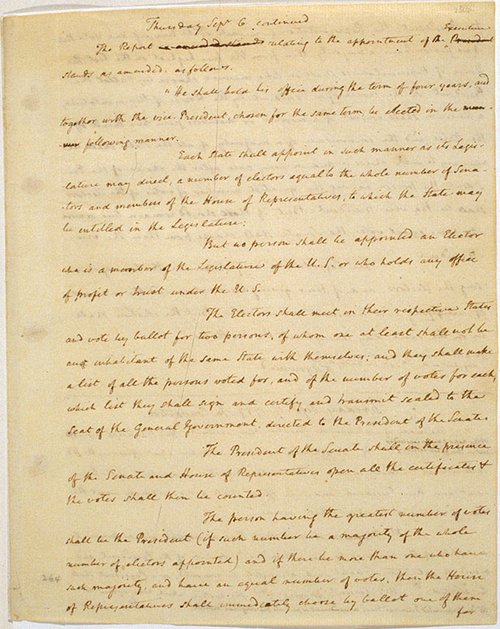 Thursday Sepr. 6. continued
The Report as amended stands relating to the appointment of the President Executive
stands as amended, as follows.
"He shall hold his office during the term of four years, and
together with the vice-President, chosen for the same term, be elected in the
following manner.
Each State shall appoint in such manner as its Legis-
lature may direct, a number of electors equal to the whole number of Sena-
tors and members of the House of Representatives, to which the State may
be entitled in the Legislature:
But no person shall be appointed an Elector
who is a member of the Legislature of the U. S. or who holds any office
of profit or trust under the U. S.
The Electors shall meet in their respective States
and vote by ballot for two persons, of whom one at least shall not be
an inhabitant of the same State with themselves; and they shall make
a list of all the persons voted for, and of the number of votes for each,
which list they shall sign and certify, and transmit sealed to the
Seat of the General Government, directed to the President of the Senate
The President of the Senate shall in the presence
of the Senate and House of Representatives open all the certificates &
the votes shall then be counted.
The person having the greatest number of votes
shall be the President (if such number be a majority of the whole
number of electors appointed) and if there be more than one who have
such majority, and have an equal number of votes, then the House
of Representatives shall immediately choose by ballot one of them
for
264